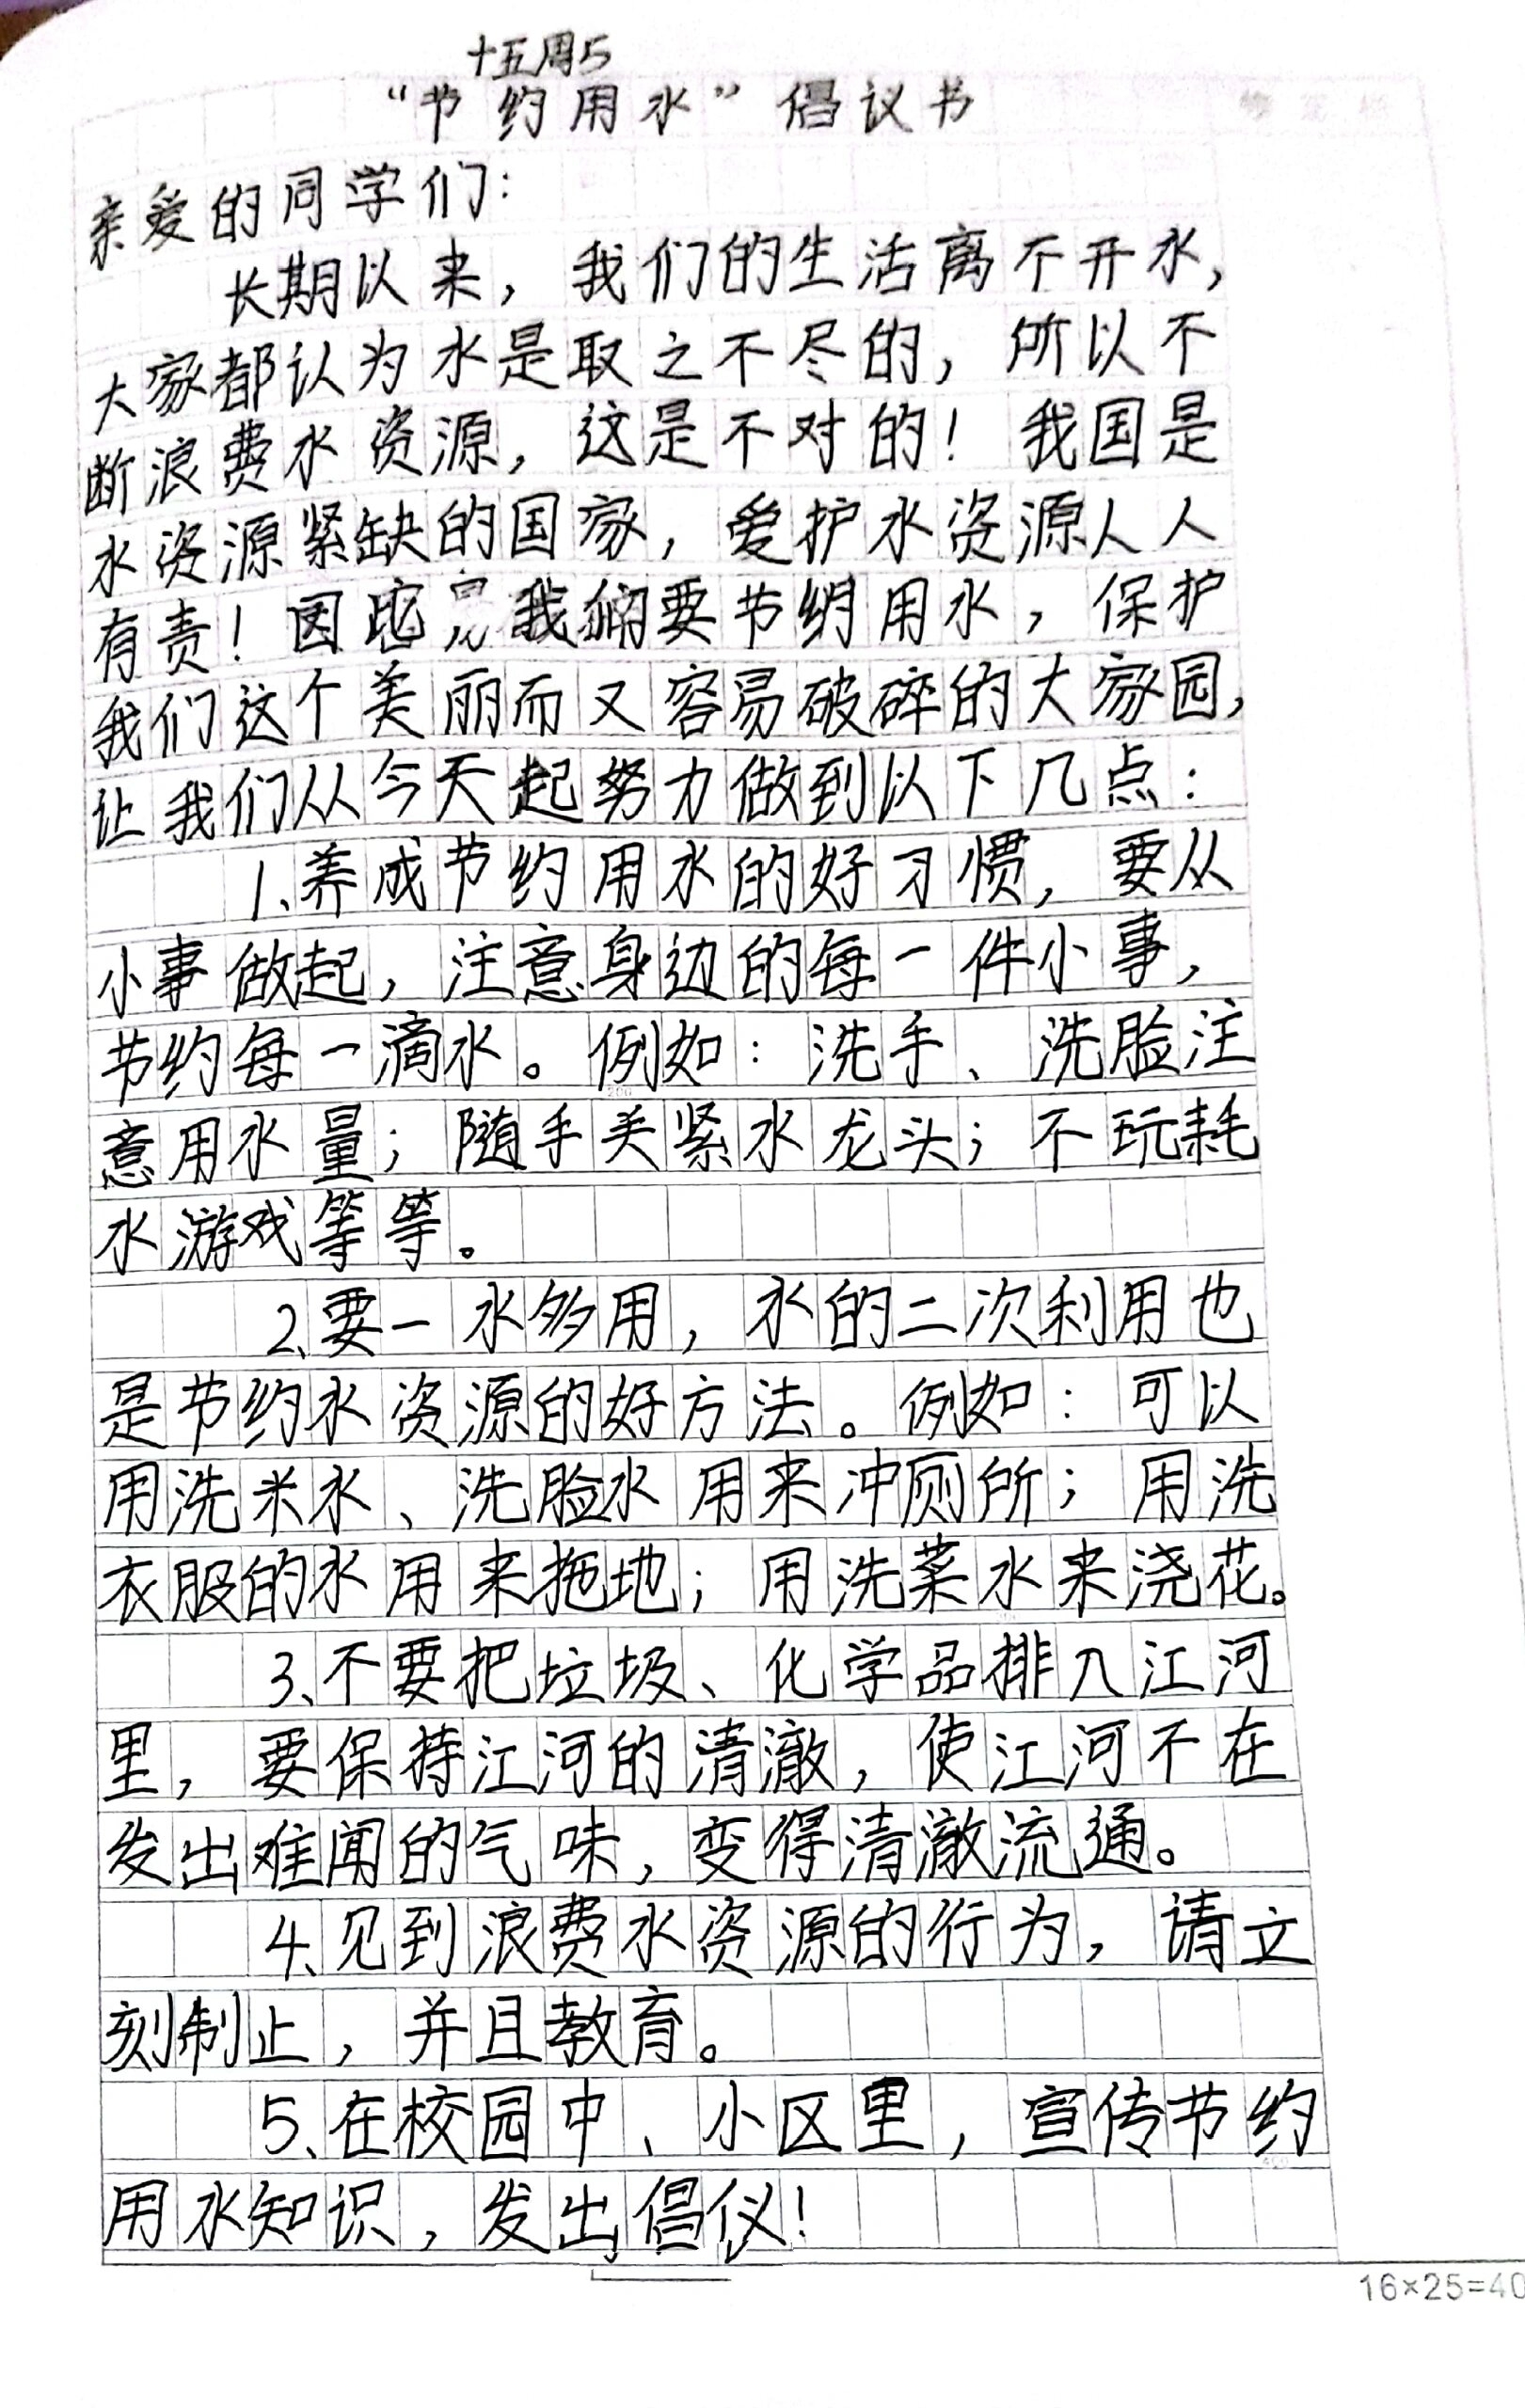 十五周5
“节约用水”倡议书
亲爱的同学们：
长期以来，我们的生活离不开水，
大家都认为水是取之不尽的，所以不
断浪费水资源，这是不对的！我国是
水资源紧缺的国家，爱护水资源人人
有责！因此，我们要节约用水，保护
我们这个美丽而又容易破碎的大家园，
让我们从今天起努力做到以下几点：
1、养成节约用水的好习惯，要从
小事做起，注意身边的每一件小事，
节约每一滴水。例如：洗手、洗脸注
意用水量；随手关紧水龙头；不玩耗
水游戏等等。
2、要一水多用，水的二次利用也
是节约水资源的好方法。例如：可以
用洗米水、洗脸水用来冲厕所；用洗
衣服的水用来拖地；用洗菜水来浇花。
3、不要把垃圾、化学品排入江河
里，要保持江河的清澈，使江河不在
发出难闻的气味，变得清澈流通。
4、见到浪费水资源的行为，请立
刻制止，并且教育。
5、在校园中、小区里，宣传节约
用水知识，发出倡仪！
16×25=40